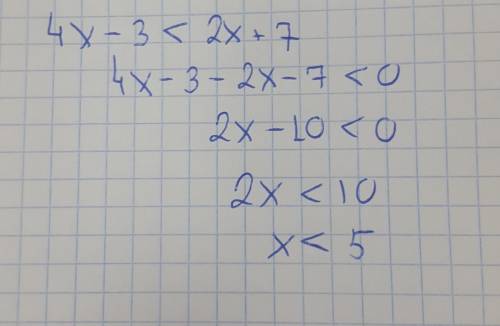 4x - 3 < 2x + 7
4x - 3 - 2x - 7 < 0
2x - 10 < 0
2x < 10
x < 5